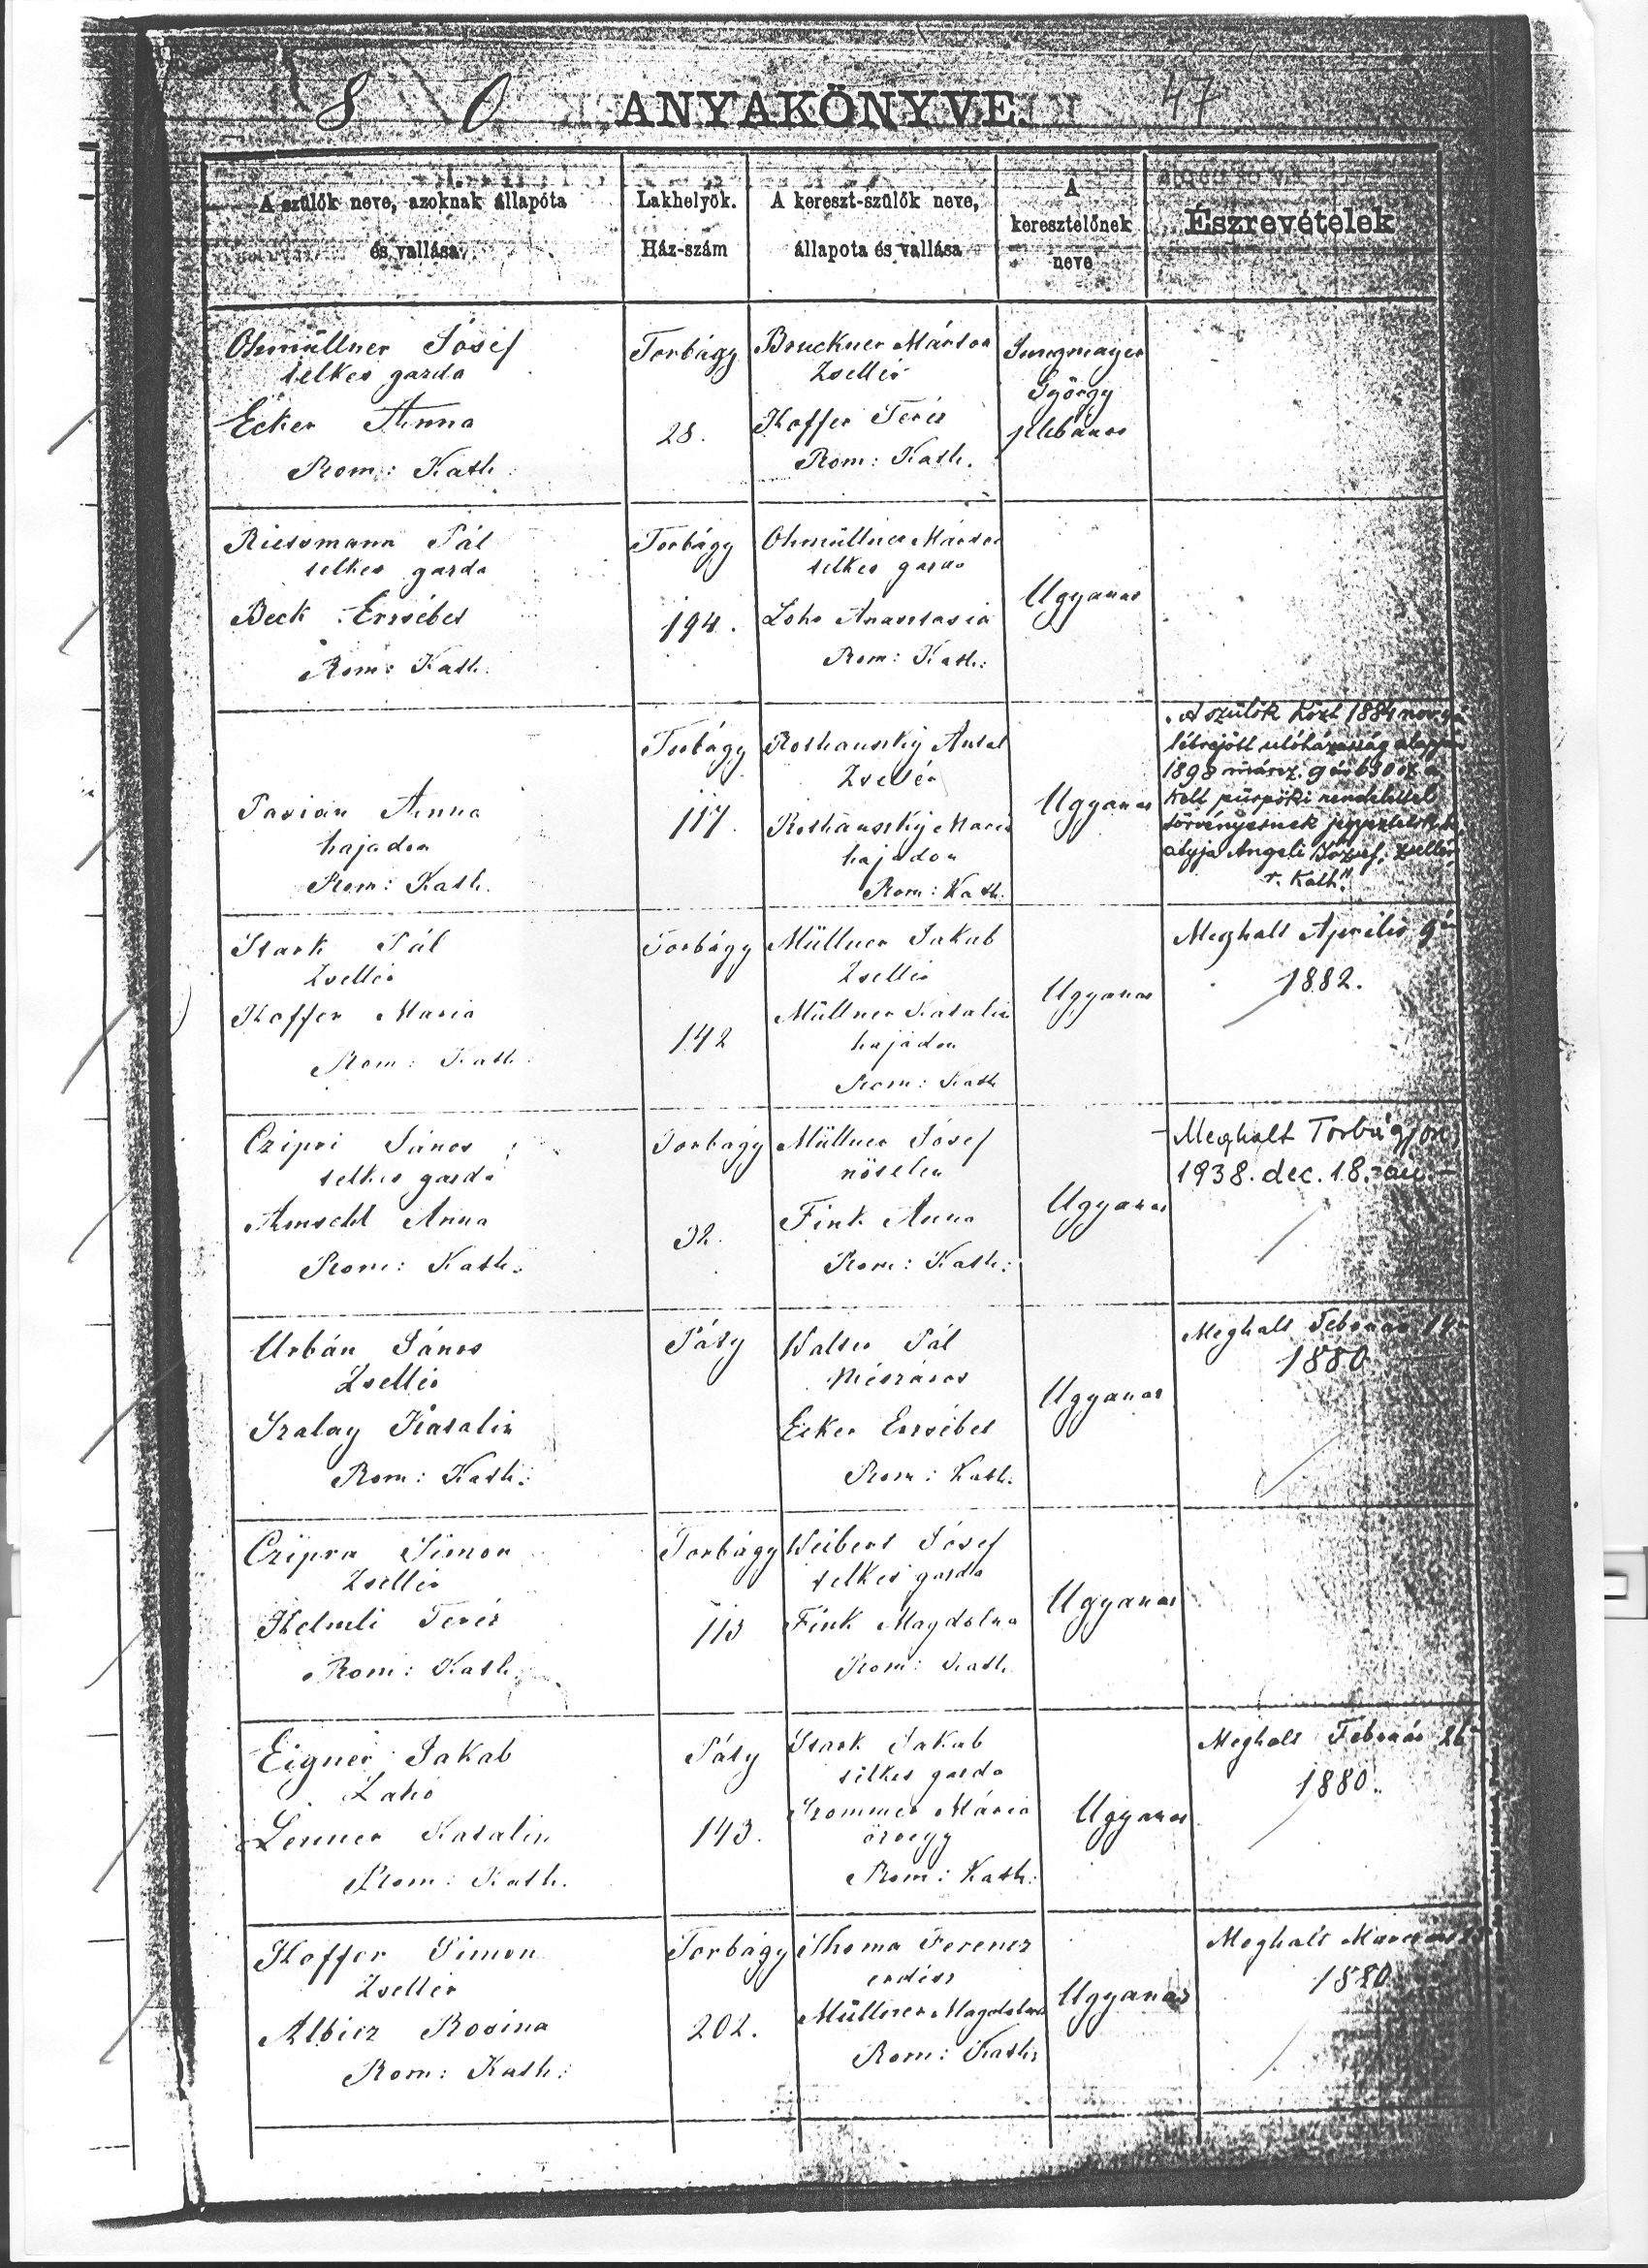 8 0 ANYAKÖNYVE. 47
A szülők neve, azoknak állapóta
és vallása
Lakhelyök.
Ház-szám
A kereszt-szülők neve,
állapota és vallása
A
keresztelőnek
neve
Észrevételek
Ohmüllner Jósef
telkes gazda
Ecker Anna
Rom: Kath:
Torbágy
28.
Bruckner Márton
Zsellér
Hoffer Teréz
Rom: Kath.
Jungmayer
György
plébános
Riessmann Pál
telkes gazda
Beck Erzsébet
Rom: Kath.
Torbágy
194.
Ohmüllner Márton
telkes gazda
Anastasia
Rom: Kath:
Ugyanaz
Anna
hajadon
Rom: Kath.
Torbágy
117.
Antal
Zsellér
Maria
hajadon
Rom: Kath.
Ugyanaz
"A szülők közt 1884 nov
létrejött utóházasság alapján
1898 márcz. 9 én 630 sz. a.
kelt püspöki rendelettel
törvényesnek
atyja Angeli József, zsellér
r. Kath."
Stark Pál
Zsellér
Hoffer Maria
Rom: Kath
Torbágy
142
Müllner Jakab
Zsellér
Müllner Katalin
hajadon
Rom: Kath
Ugyanaz
Meghalt Április 9én
1882.
Czipri János
telkes gazda
Anna
Rom: Kath.
Torbágy
32.
Müllner Jósef
nőtelen
Fink Anna
Rom: Kath:
Ugyanaz
Meghalt Torbágyon
1938. dec. 18.-án.-
Urbán János
Zsellér
Szalay Katalin
Rom: Kath:
Páty
Walter Pál
Mészáros
Ecker Erzsébet
Rom: Kath.
Ugyanaz
Meghalt Február 14n
1880
Czipra Simon
Zsellér
Helmli Teréz
Rom: Kath.
Torbágy
113
Weibert Jósef
telkes gazda
Fink Magdolna
Rom: Kath.
Ugyanaz
Eigner Jakab
Lakó
Lenner Katalin
Rom: Kath.
Páty
143.
Stark Jakab
telkes gazda
Mária
özvegy
Rom: Kath:
Ugyanaz
Meghalt Február 26
1880.
Hoffer Simon
Zsellér
Albicz Rosina
Rom: Kath:
Torbágy
202.
Thoma Ferencz
erdész
Müllner Magdolna
Rom: Kath:
Ugyanaz
Meghalt
1880